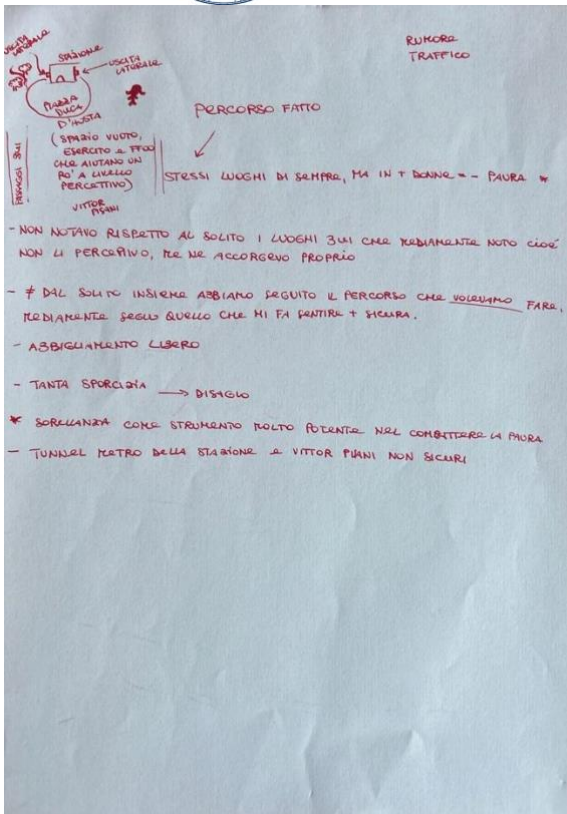 USCITA
LATERALE
STAZIONE
USCITA
LATERALE
RUMORE
TRAFFICO
PIAZZA
DUCA
D'AOSTA
PERCORSO FATTO
(SPAZIO VUOTO,
ESERCITO E FFOO
CHE AIUTANO UN
PO' A LIVELLO
PERCETTIVO)
PASSAGGI BUI
VITTOR
PISANI
STESSI LUOGHI DI SEMPRE, MA IN + DONNE = - PAURA *
- NON NOTAVO RISPETTO AL SOLITO I LUOGHI BUI CHE MEDIAMENTE NOTO CIOÈ
NON LI PERCEPIVO, ME NE ACCORGEVO PROPRIO
- ≠ DAL SOLITO INSIEME ABBIAMO SEGUITO IL PERCORSO CHE VOLEVAMO FARE,
MEDIAMENTE SEGUO QUELLO CHE MI FA SENTIRE + SICURA.
- ABBIGLIAMENTO LIBERO
- TANTA SPORCIZIA → DISAGIO
* SORELLANZA COME STRUMENTO MOLTO POTENTE NEL COMBATTERE LA PAURA
- TUNNEL METRO DELLA STAZIONE E VITTOR PISANI NON SICURI